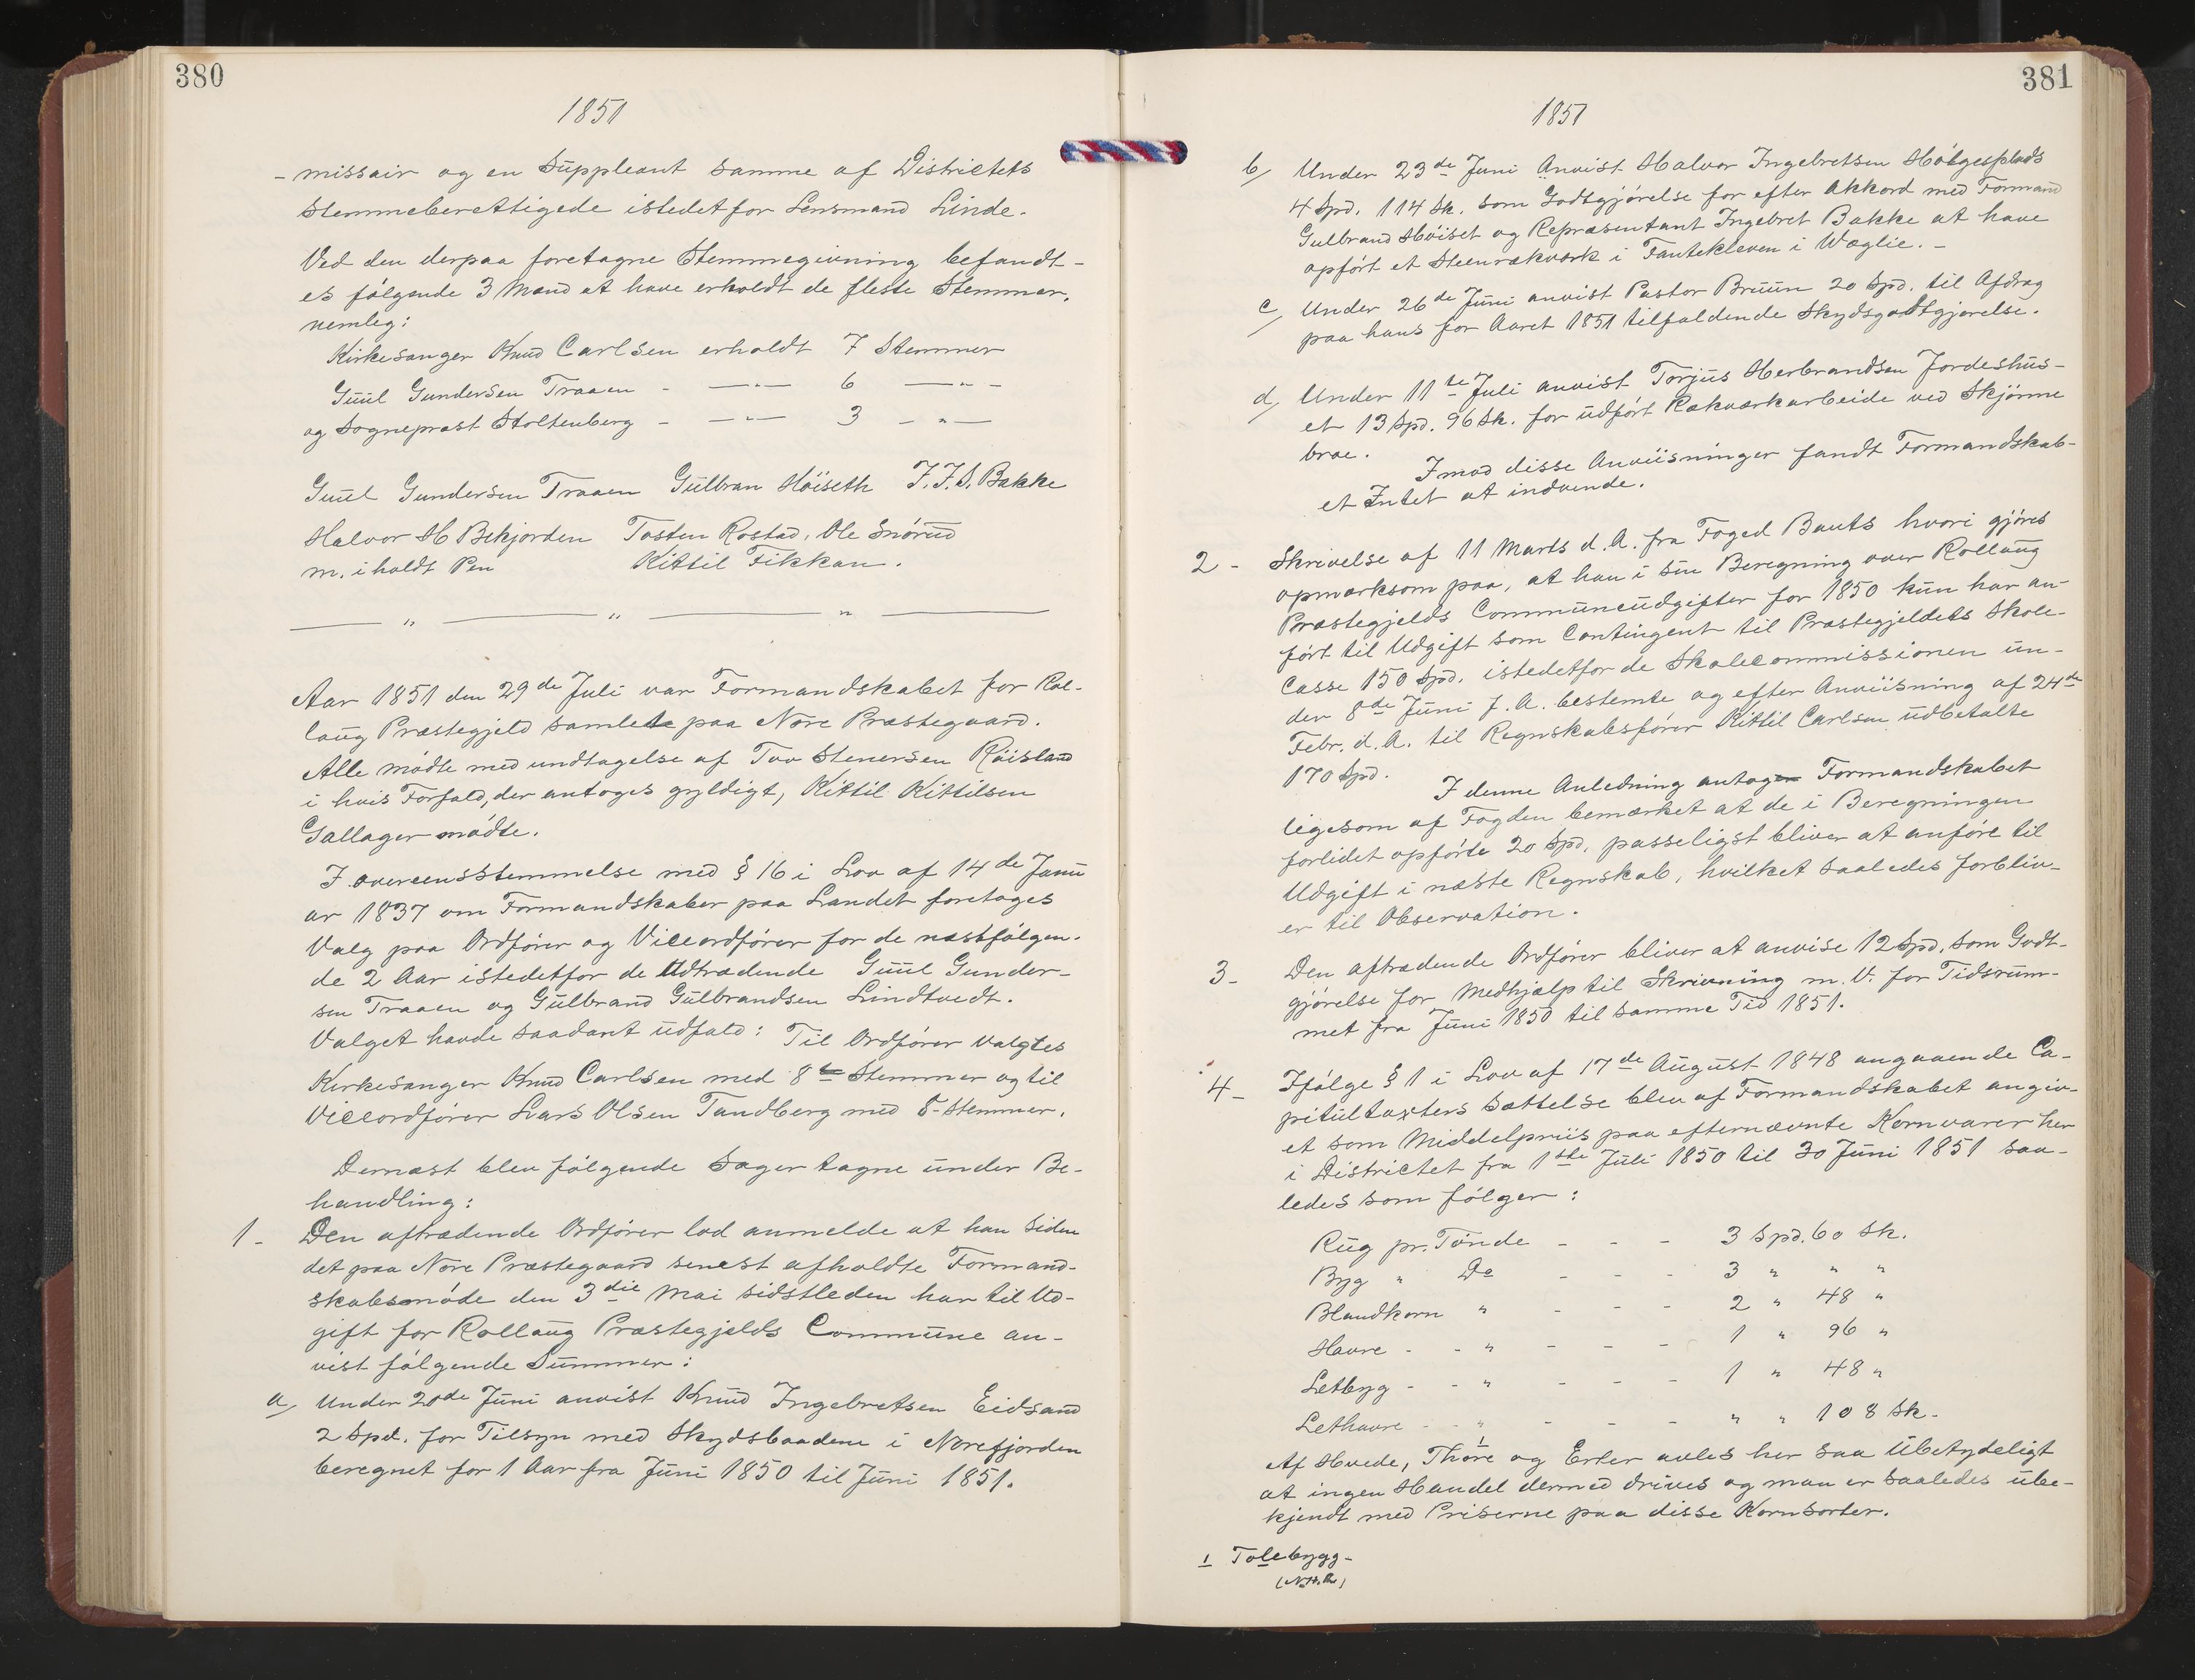 380
1851
-missair og en Suppleant samme af Districtets
Stemmeberettigede istedetfor Lensmand Linde.
Ved den derpaa foretagne Stemmegivning befandt-
es følgende 3 Mænd at have erholdt de fleste Stemmer,
nemleg:
Kirkesanger Knud Carlsen erholdt 7 Stemmer
Guul Gundersen Traaen - —"— 6 —"—
og Sognepræst Stoltenberg - —"— 3 —"—
Guul Gundersen Traaen Gulbran Höiseth I.I.S. Bakke
Halvor H Bekjorden Tosten Rostad, Ole Snörud
m. i holdt Pen Kittil Fikkan.
— " — " — " —
Aar 1851 den 29de Juli var Formandskabet for Rol-
laug Præstegjeld samlet paa Nore Præstegaard.
Alle mødte med undtagelse af Tov Stenersen Röisland
i hvis Forfald, der antoges gyldigt, Kittil Kittilsen
Gallager mødte.
I overeensstemmelse med § 16 i Lov af 14de Janu
ar 1837 om Formandskaber paa Landet foretoges
Valg paa Ordfører og Viceordfører for de næstfølgen-
de 2 Aar istedetfor de Udtrædende Guul Gunder-
sen Traaen og Gulbrand Gulbrandsen Lindtvedt.
Valget havde saadant udfald: Til Ordfører valgtes
Kirkesanger Knud Carlsen med 8te Stemmer og til
Viceordfører Lars Olsen Tandberg med 5- Stemmer.
Dernæst blev følgende Sager tagne under Be-
handling:
1- Den aftrædende Ordfører lod anmelde at han siden
det paa Nore Præstegaard senest afholdte Formand-
skabsmøde den 3die Mai sidstleden har til Ud-
gift for Rollaug Præstegjelds Commune an-
vist følgende Summer:
a/ Under 20de Juni anvist Knud Ingebretsen Eidsand
2 Spd. for Tilsyn med Skydsbaadene i Norefjorden
beregnet for 1 Aar fra Juni 1850 til Juni 1851.
381
1851
b/ Under 23de Juni Anvist Halvor Ingebretsen Hölgesplads
4 Spd. 114 Sk. som Godtgjørelse for efter Akkord med Formand
Gulbrand Höiset og Repræsentant Ingebret Bakke at have
opført et Steenrækværk i Fantekleven i Wæglie. -
c/ Under 26de Juni anvist Pastor Bruun 20 Spd. til Afdrag
paa hans for Aaret 1851 tilfaldende Skydsgodtgjørelse.
d/ Under 11te Juli anvist Torjus Herbrandsen Jordeshus-
et 13 Spd. 96 Sk. for udført Rækværkarbeide ved Skjönne
broe.
Imod disse Anviisninger fandt Formandskab-
et Intet at indvende.
2- Skrivelse af 11 Marts d.A. fra Foged Bauts hvori gjøres
opmærksom paa, at han i sin Beregning over Rollaug
Præstegjelds Communeudgifter for 1850 kun har an-
ført til Udgift som Contingent til Præstegjeldets Skole-
casse 150 Spd. istedetfor de Skolecommissionen un-
der 8de Juni f.A. bestemte og efter Anviisning af 24de
Febr. d.A. til Regnskabsfører Kittil Carlsen udbetalte
170 Spd.
I denne Anledning antog Formandskabet
ligesom af Fogden bemærket at de i Beregningen
forlidet opførte 20 Spd. passeligst bliver at anføre til
Udgift i næste Regnskab, hvilket saaledes forbliv-
er til Observation.
3- Den aftrædende Ordfører bliver at anvise 12 Spd. som Godt-
gjørelse for Medhjælp til Skrivning m.V. for Tidsrum-
met fra Juni 1850 til samme Tid 1851.
4- Ifølge § 1 i Lov af 17de August 1848 angaaende Ca-
pitultaxters Sættelse blev af Formandskabet angiv-
et som Middelpriis paa efternævnte Kornvarer her
i Districtet fra 1ste Juli 1850 til 30 Juni 1851 saa-
ledes som følger:
Rug pr. Tønde - - - 3 Spd. 60 Sk.
Byg " Do - - - 3 " " "
Blandkorn " - - - 2 " 48 "
Havre - - " - - - 1 " 96 "
Letbyg - - " - - - 1 " 48 "
Lethavre - - " - - - " " 108 Sk.
Af Hvede, Thore 1 og Erter avles her saa Ubetydeligt
at ingen Handel dermed drives og man er saaledes ube-
kjendt med Priserne paa disse Kornsorter.
1 Tolebygg-